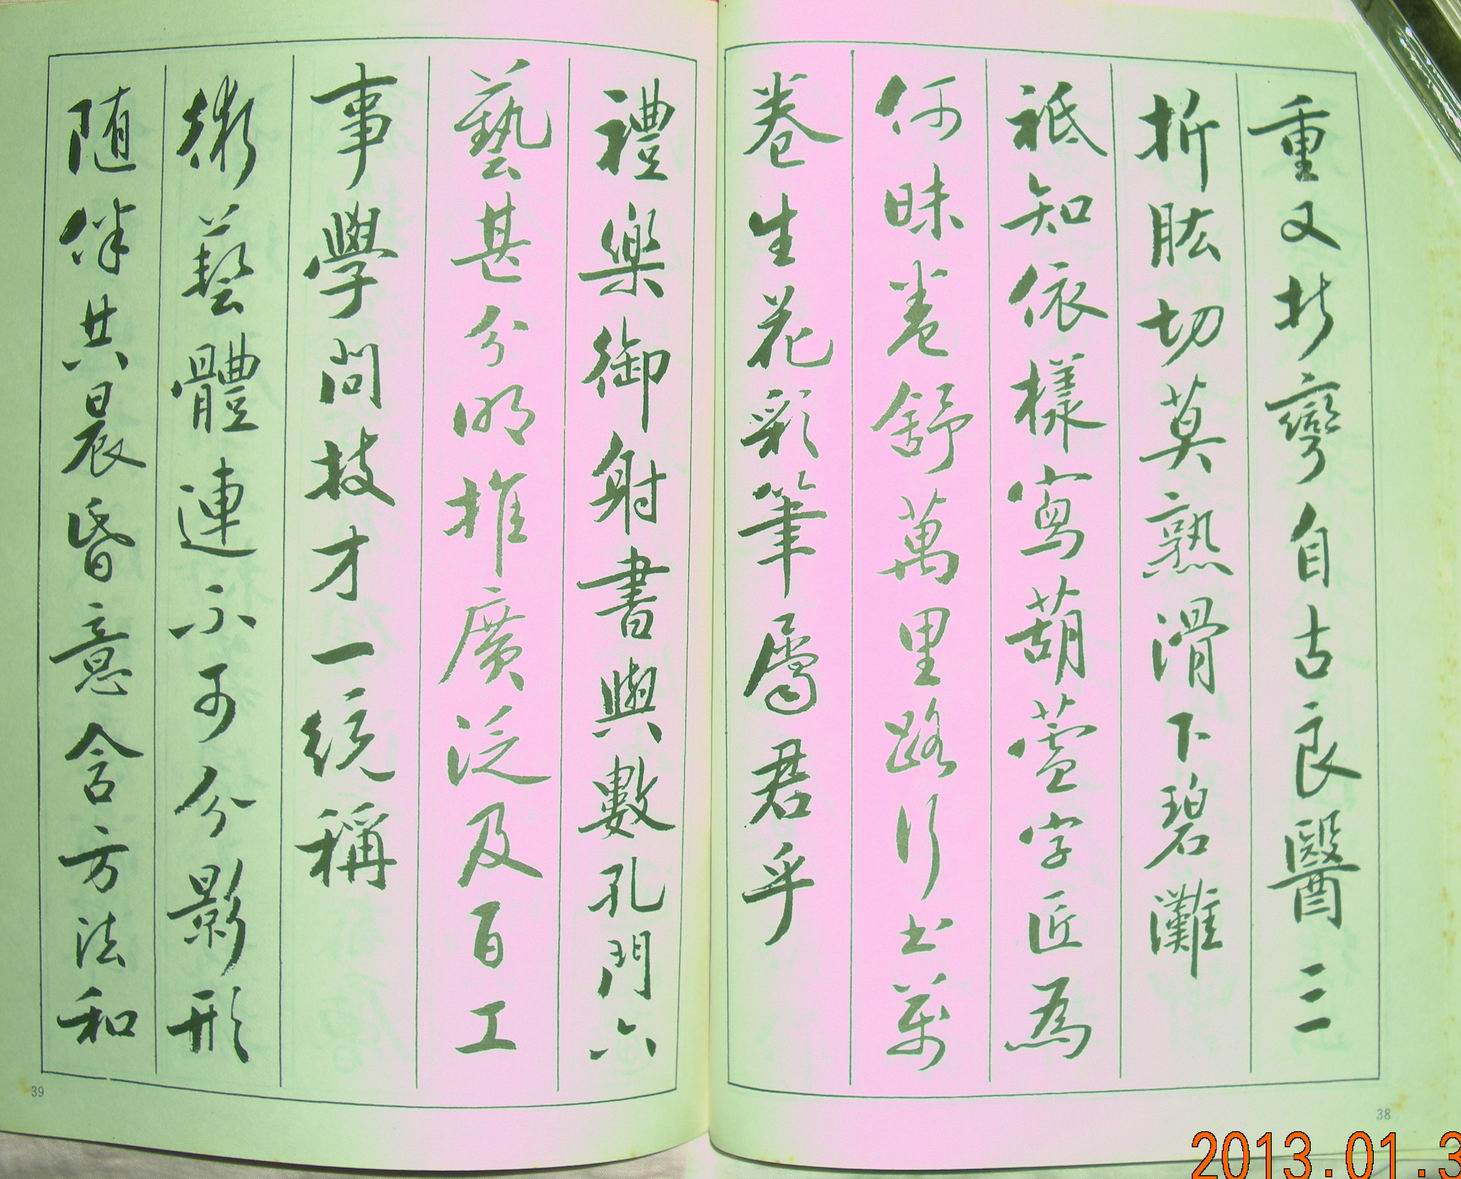 重又折彎自古良醫三
折肱切莫熟滑下碧灘
祗知依樣寫葫蘆字匠為
何昧卷舒萬里路行出萬
卷生花彩筆屬君乎
禮樂御射書與數孔門六
藝甚分明推廣泛及百工
事學問技才一統稱
術藝體連不可分影形
随伴共晨昏意含方法和
39
38
2013.01.3